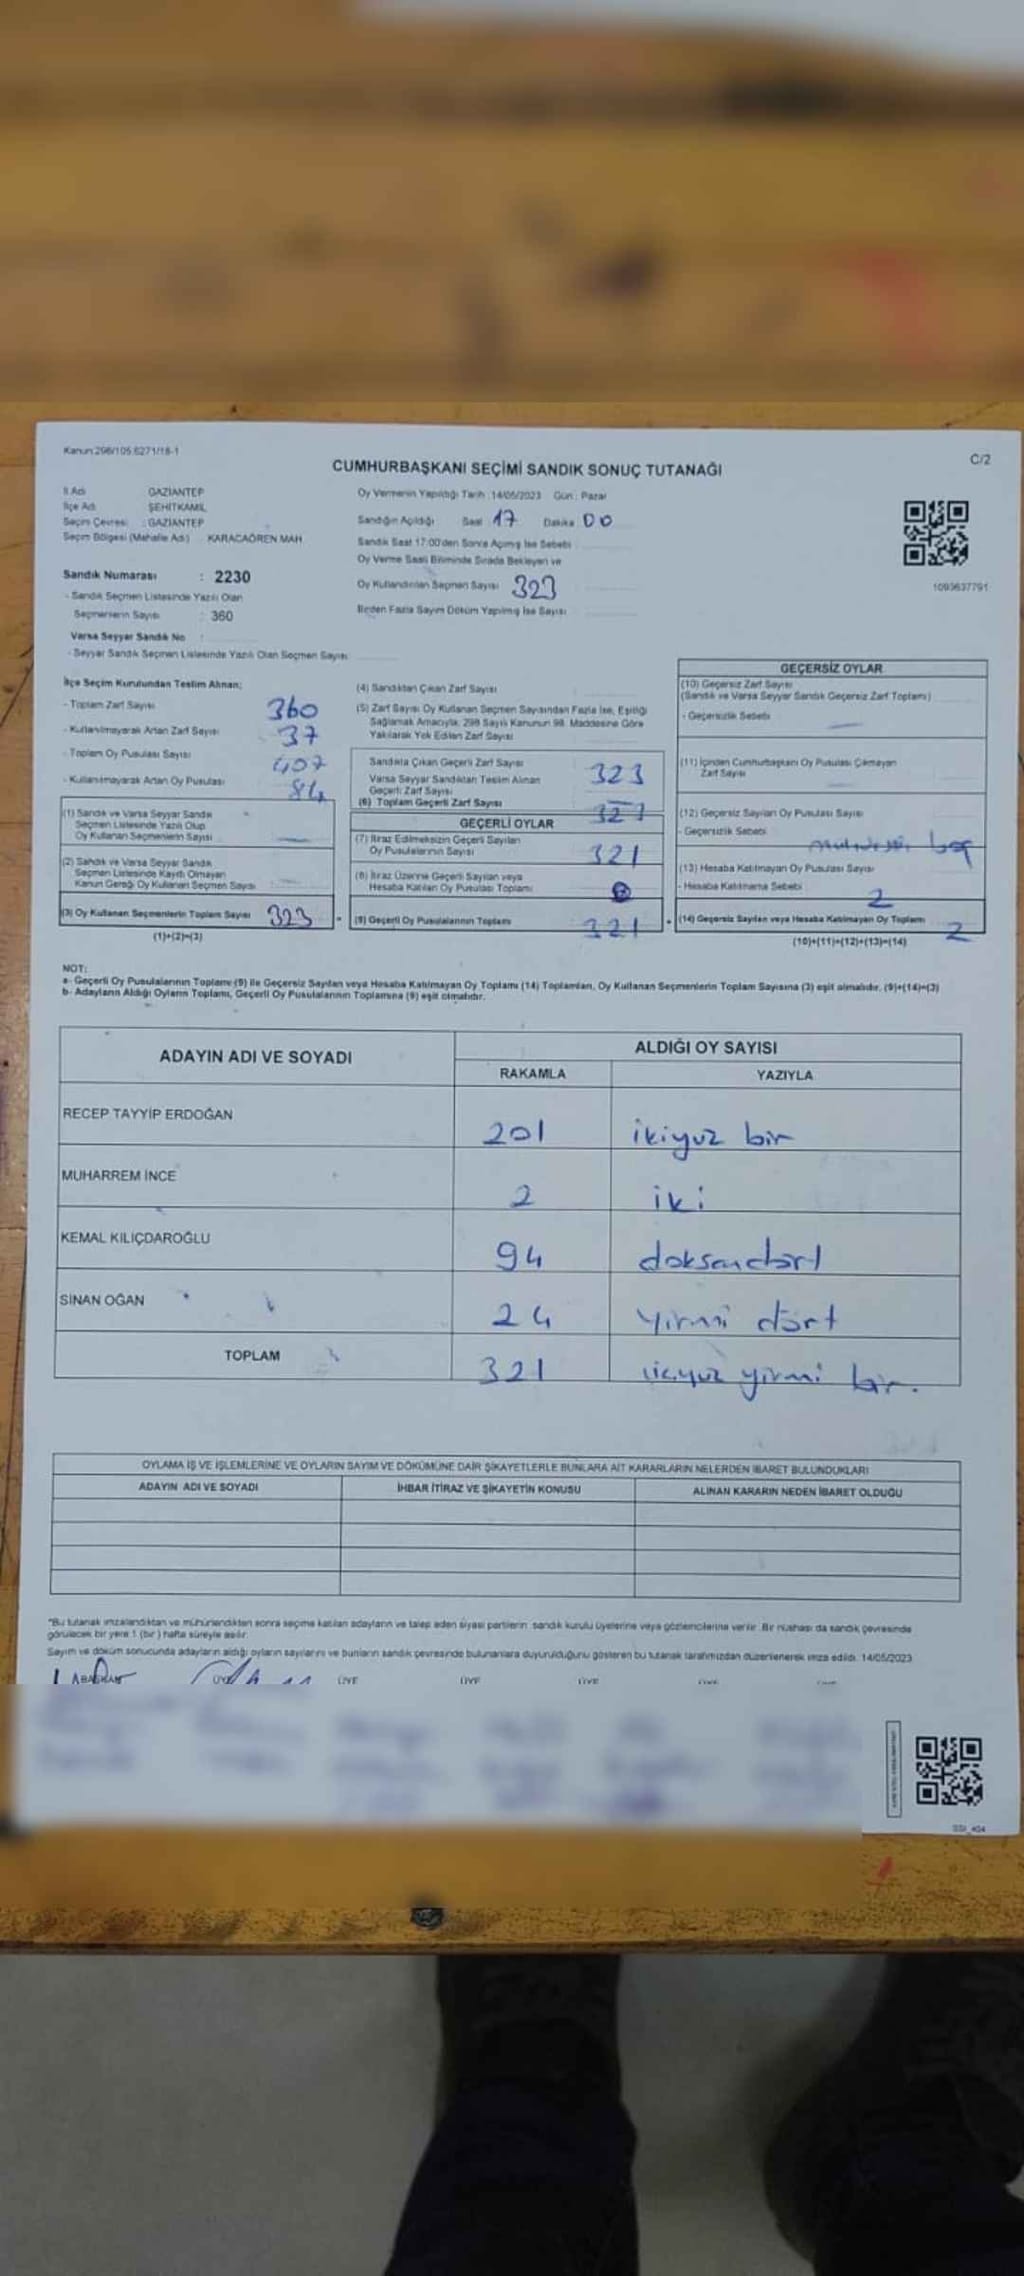 Kanun:298/105,6271/18-1
C/2
CUMHURBAŞKANI SEÇİMİ SANDIK SONUÇ TUTANAĞI
İl Adı GAZİANTEP
İlçe Adı ŞEHİTKAMİL
Seçim Çevresi : GAZİANTEP
Seçim Bölgesi (Mahalle Adı) KARACAÖREN MAH.
Sandık Numarası : 2230
- Sandık Seçmen Listesinde Yazılı Olan
Seçmenlerin Sayısı : 360
Varsa Seyyar Sandık No :
- Seyyar Sandık Seçmen Listesinde Yazılı Olan Seçmen Sayısı
Oy Vermenin Yapıldığı Tarih : 14/05/2023 Gün : Pazar
Sandığın Açıldığı Saat 17 Dakika 00
Sandık Saat 17:00'den Sonra Açılmış İse Sebebi
Oy Verme Saati Bitiminde Sırada Bekleyen ve
Oy Kullandırılan Seçmen Sayısı 323
Birden Fazla Sayım Döküm Yapılmış İse Sayısı
1093637791
İlçe Seçim Kurulundan Teslim Alınan;
- Toplam Zarf Sayısı 360
- Kullanılmayarak Artan Zarf Sayısı 37
- Toplam Oy Pusulası Sayısı 407
- Kullanılmayarak Artan Oy Pusulası 84
(1) Sandık ve Varsa Seyyar Sandık
Seçmen Listesinde Yazılı Olup
Oy Kullanan Seçmenlerin Sayısı
(2) Sandık ve Varsa Seyyar Sandık
Seçmen Listesinde Kayıtlı Olmayan
Kanun Gereği Oy Kullanan Seçmen Sayısı
(3) Oy Kullanan Seçmenlerin Toplam Sayısı 323
(1)+(2)=(3)
(4) Sandıktan Çıkan Zarf Sayısı
(5) Zarf Sayısı Oy Kullanan Seçmen Sayısından Fazla İse, Eşitliği
Sağlamak Amacıyla; 298 Sayılı Kanunun 98. Maddesine Göre
Yakılarak Yok Edilen Zarf Sayısı
Sandıkta Çıkan Geçerli Zarf Sayısı 323
Varsa Seyyar Sandıktan Teslim Alınan
Geçerli Zarf Sayısı
(6) Toplam Geçerli Zarf Sayısı
GEÇERLİ OYLAR
(7) İtiraz Edilmeksizin Geçerli Sayılan
Oy Pusulalarının Sayısı 321
(8) İtiraz Üzerine Geçerli Sayılan veya
Hesaba Katılan Oy Pusulası Toplamı
(9) Geçerli Oy Pusulalarının Toplamı 321
GEÇERSİZ OYLAR
(10) Geçersiz Zarf Sayısı
(Sandık ve Varsa Seyyar Sandık Geçersiz Zarf Toplamı)
- Geçersizlik Sebebi
(11) İçinden Cumhurbaşkanı Oy Pusulası Çıkmayan
Zarf Sayısı
(12) Geçersiz Sayılan Oy Pusulası Sayısı
- Geçersizlik Sebebi
(13) Hesaba Katılmayan Oy Pusulası Sayısı
- Hesaba Katılmama Sebebi 2
(14) Geçersiz Sayılan veya Hesaba Katılmayan Oy Toplamı 2
(10)+(11)+(12)+(13)=(14)
NOT:
a- Geçerli Oy Pusulalarının Toplamı (9) ile Geçersiz Sayılan veya Hesaba Katılmayan Oy Toplamı (14) Toplamları, Oy Kullanan Seçmenlerin Toplam Sayısına (3) eşit olmalıdır. (9)+(14)=(3)
b- Adayların Aldığı Oyların Toplamı, Geçerli Oy Pusulalarının Toplamına (9) eşit olmalıdır.
ADAYIN ADI VE SOYADI
ALDIĞI OY SAYISI
RAKAMLA YAZIYLA
RECEP TAYYİP ERDOĞAN 201 ikiyüz bir
MUHARREM İNCE 2 iki
KEMAL KILIÇDAROĞLU 94 doksandört
SİNAN OĞAN 24 yirmi dört
TOPLAM 321 üçyüz yirmi bir.
OYLAMA İŞ VE İŞLEMLERİNE VE OYLARIN SAYIM VE DÖKÜMÜNE DAİR ŞİKAYETLERLE BUNLARA AİT KARARLARIN NELERDEN İBARET BULUNDUKLARI
ADAYIN ADI VE SOYADI İHBAR İTİRAZ VE ŞİKAYETİN KONUSU ALINAN KARARIN NEDEN İBARET OLDUĞU
"Bu tutanak imzalandıktan ve mühürlendikten sonra seçime katılan adayların ve talep eden siyasi partilerin sandık kurulu üyelerine veya gözlemcilerine verilir. Bir nüshası da sandık çevresinde
görülecek bir yere 1 (bir) hafta süreyle asılır.
Sayım ve döküm sonucunda adayların aldığı oyların sayılarını ve bunların sandık çevresinde bulunanlara duyurulduğunu gösteren bu tutanak tarafımızdan düzenlenerek imza edildi. 14/05/2023
BAŞKAN ÜYE ÜYE ÜYE ÜYE